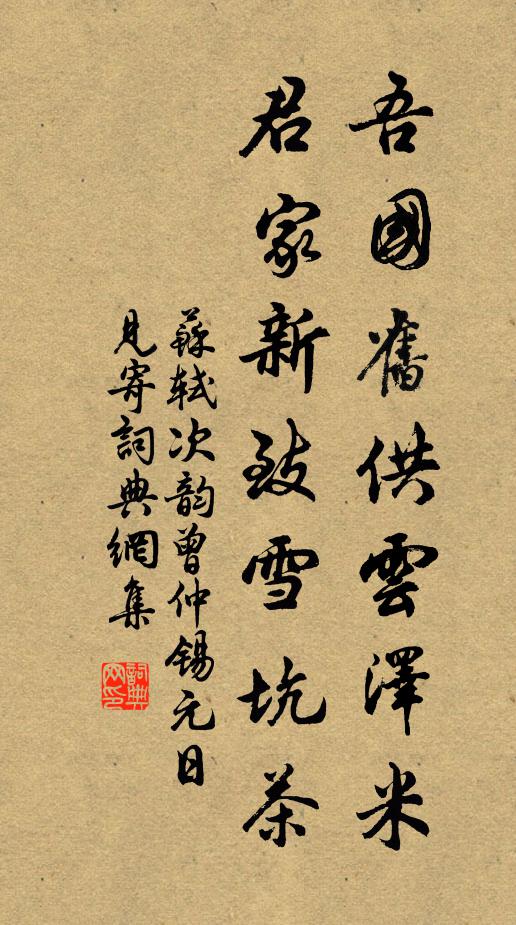 吾國舊供雲澤米
君家新致雪坑茶
蘇軾次韵曾仲錫元日
見寄詞典網集
詞典網印